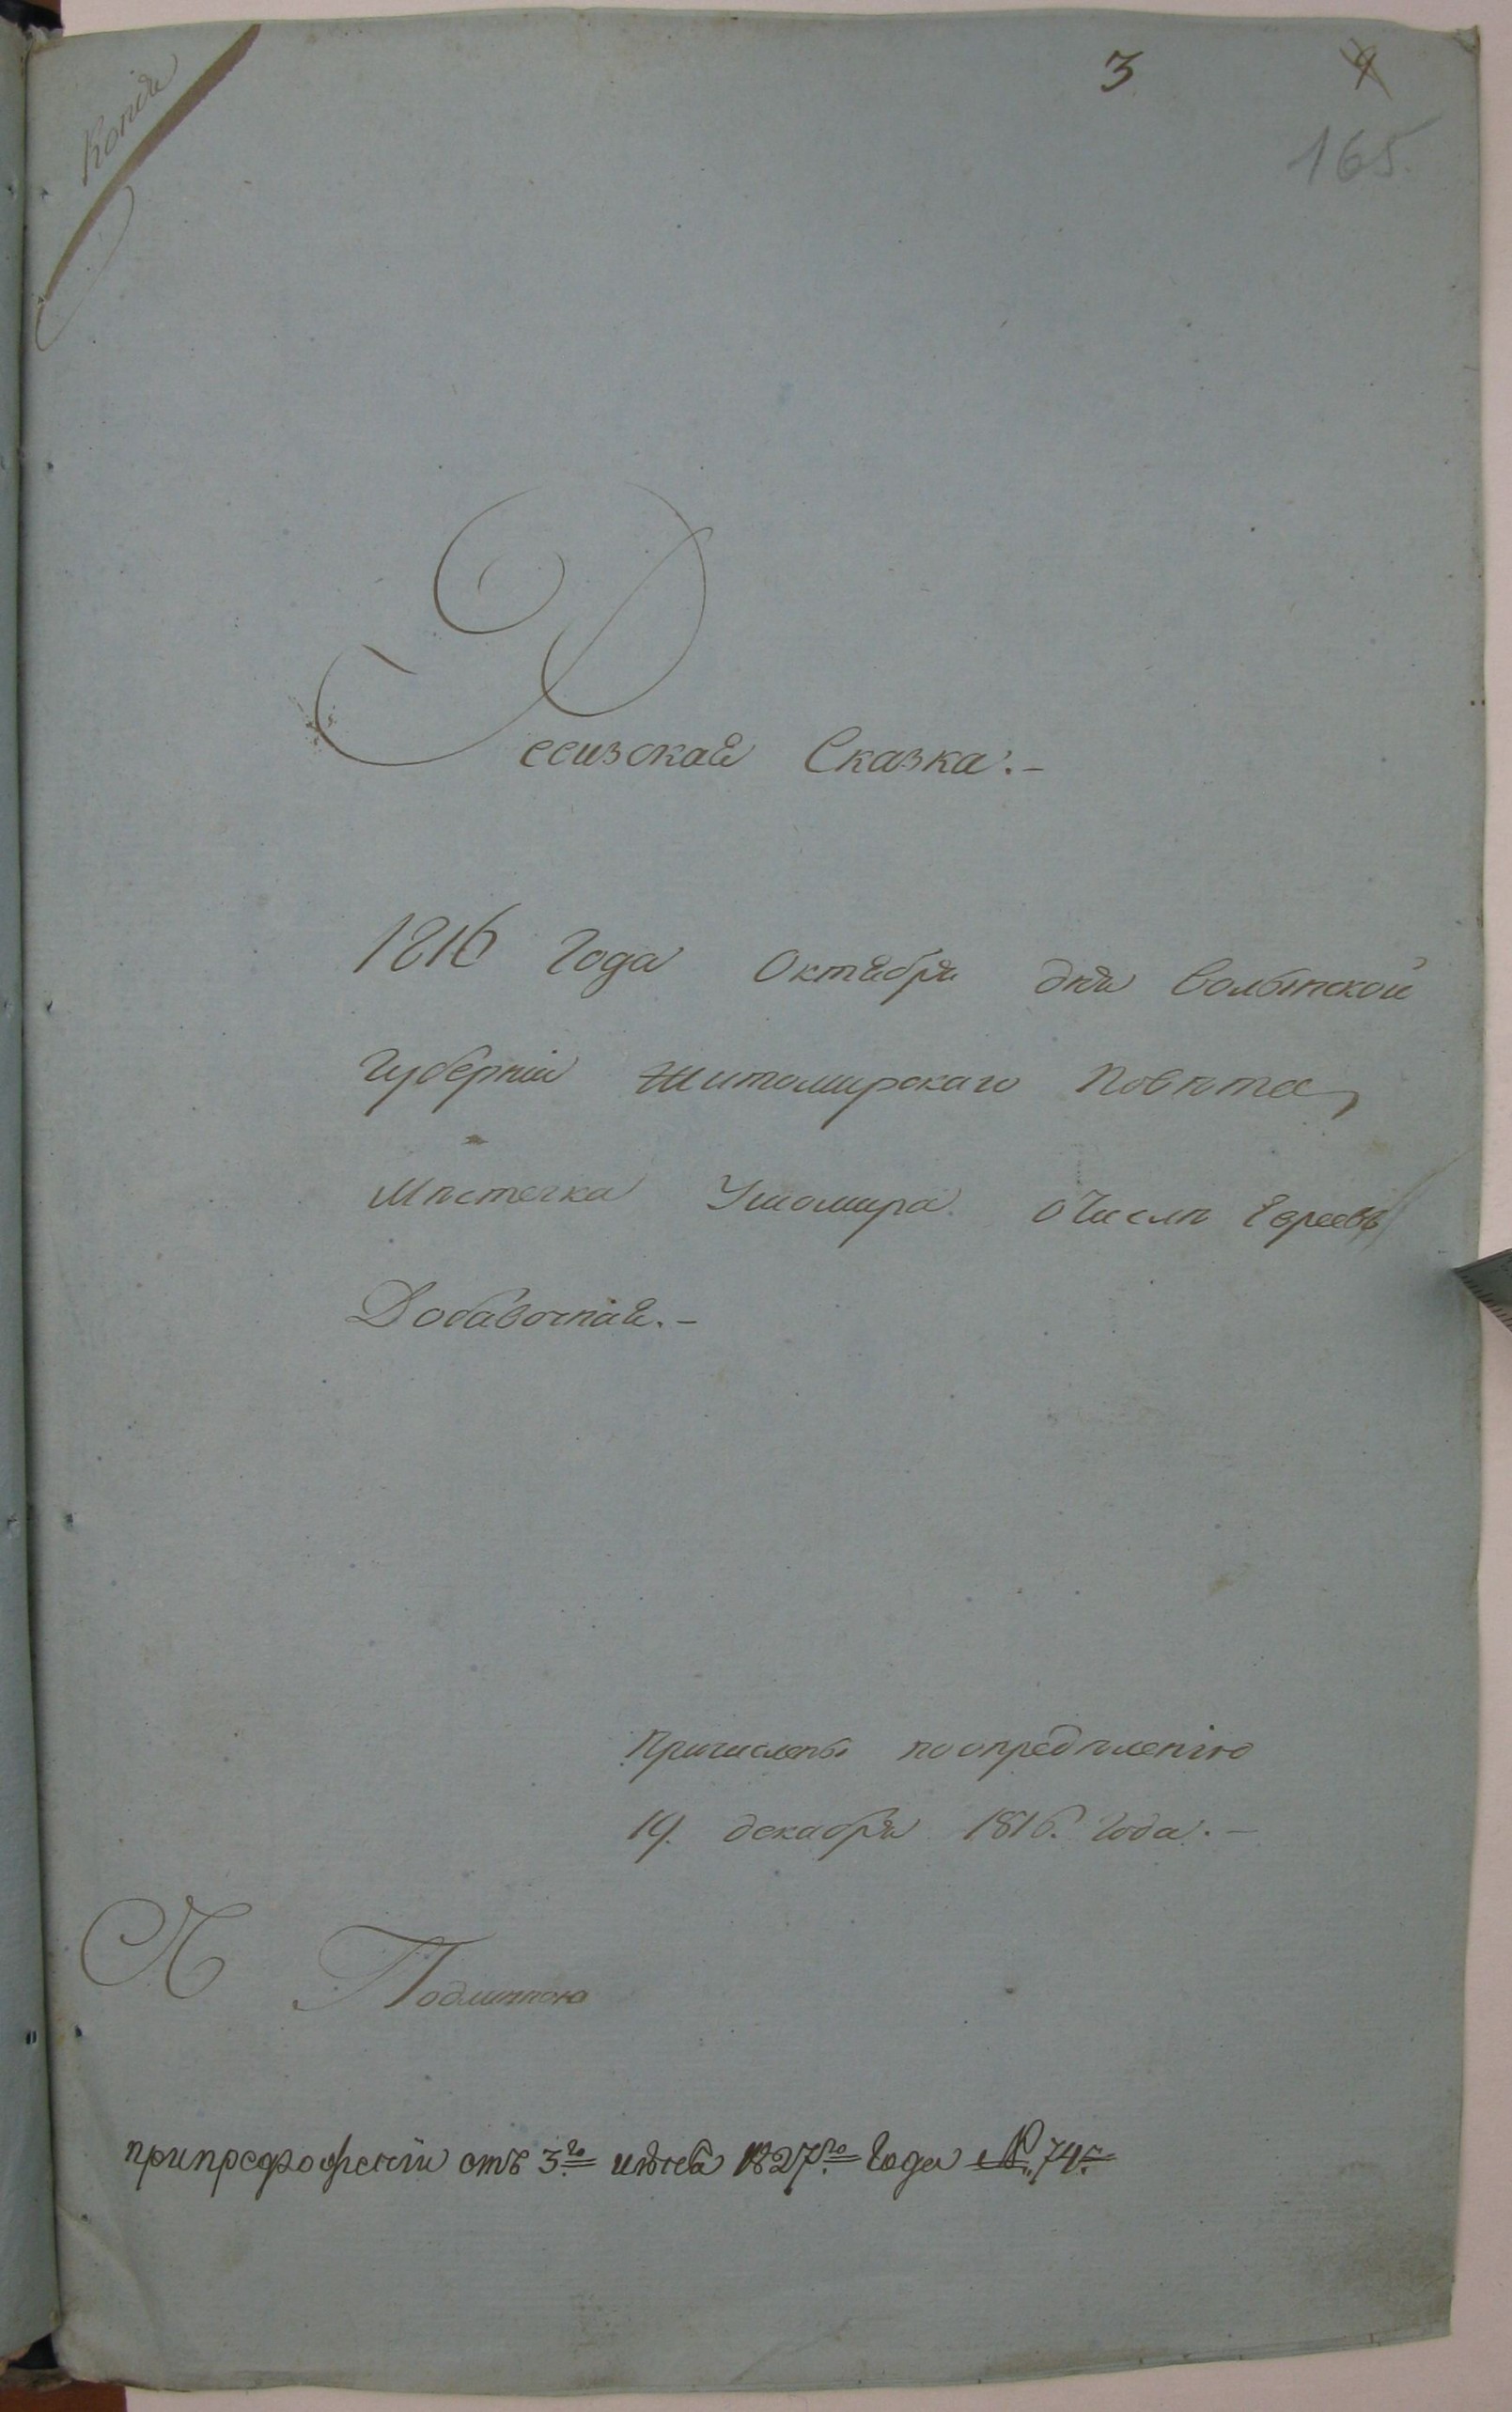 Копія
3
165.
Ревизская Сказка.-
1816 Года Октября дня Волынской
Губерніи Житомирскаго Повѣта,
Мѣстечка Ушомира о Числѣ Евреевъ
Добавочная.-
Причислены поопредѣленію
19. декабря 1816. Года.-
Подлинною
припредложеніи отъ 3го 1827го Года №